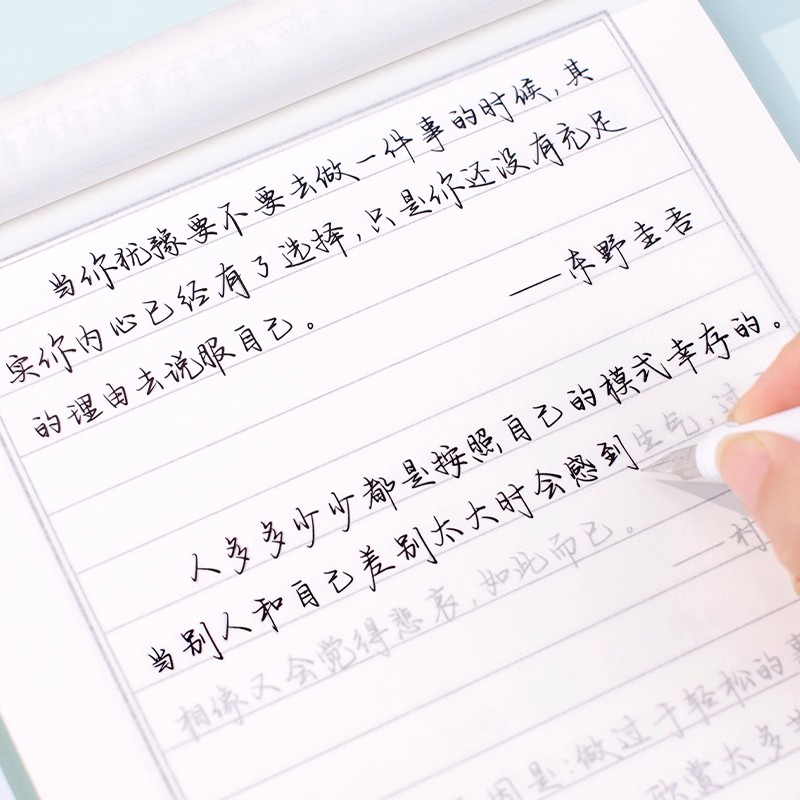 当你犹豫要不要去做一件事的时候,其
实你内心已经有了选择,只是你还没有充足
的理由去说服自己。
——东野圭吾
人多多少少都是按照自己的模式幸存的。
当别人和自己差别太大时会感到生气,过
相像又会觉得悲哀,如此而已。
——村
因是:做过于轻松的事
欣赏太多